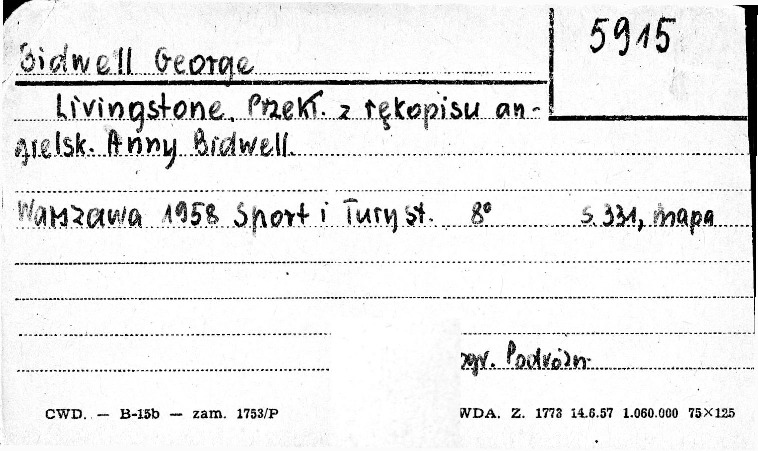 5915
Bidwell George
Livingstone. Przekł. z rękopisu an-
gielsk. Anny Bidwell.
Warszawa 1958 Sport i Turyst. 8° s. 331, mapa
Podróżn.
CWD. — B-15b — zam. 1753/P WDA. Z. 1773 14.6.57 1.060.000 75×125